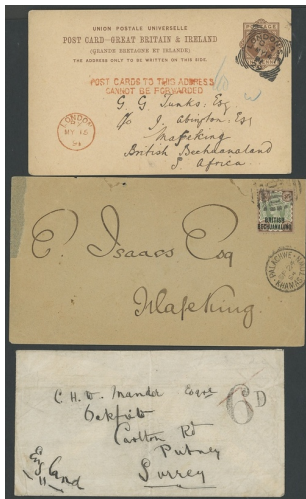 UNION POSTALE UNIVERSELLE
POST CARD-GREAT BRITAIN & IRELAND
(GRANDE BRETAGNE ET IRLANDE)
THE ADDRESS ONLY TO BE WRITTEN ON THIS SIDE.
POST CARDS TO THIS ADDRESS
CANNOT BE FORWARDED
LONDON
MY 16
G. G. Tunks, Esq
c/o J. Abington, Esq
Mafeking
British Bechuanaland
S Africa
E. Isaacs Esq
Mafeking.
BRITISH
BECHUANALAND
PALACHWE
C. H. W. Mander Esqre
6D
Carlton Rd
Putney
Surrey
England